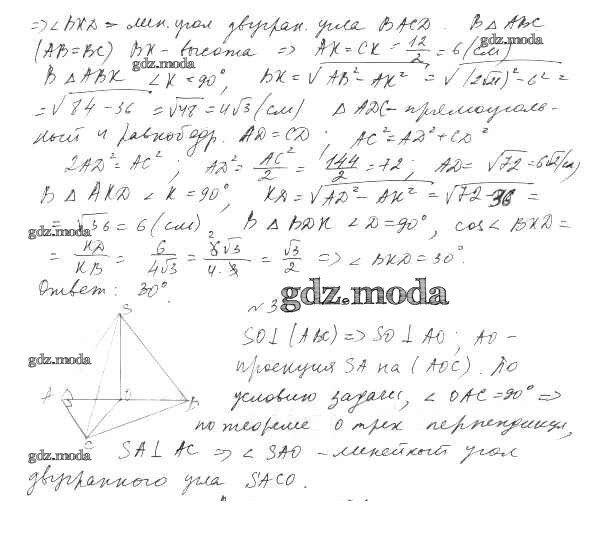 => ∠BKD = лин. угол двугран. угла BACD. В △ ABC
(AB=BC) BK - высота => AK = CK = 12/2 = 6 (см)
gdz.moda
gdz.moda
В △ ABK ∠K = 90°, BK = √(AB² - AK²) = √((2√21)² - 6²) =
= √(84 - 36) = √48 = 4√3 (см) △ ADC - прямоуголь-
ный и равнобедр. AD = CD; AC² = AD² + CD²
2AD² = AC²; AD² = AC²/2 = 144/2 = 72; AD = √72 = 6√2 (см)
В △ AKD ∠K = 90°, KD = √(AD² - AK²) = √(72 - 36) =
= √36 = 6 (см) В △ BDK ∠D = 90°, cos∠BKD =
gdz.moda
= KD/KB = 6/4√3 = 6√3/4·3 = √3/2 => ∠BKD = 30°.
Ответ: 30°.
gdz.moda
№ 3
S
SO⊥(ABC) => SO⊥AO; AO -
gdz.moda
проекция SA на (AOC). По
A O B
условию задачи, ∠OAC = 90° =>
по теореме о трех перпендикул,
C
gdz.moda
SA⊥AC => ∠SAO - линейный угол
двугранного угла SACO.